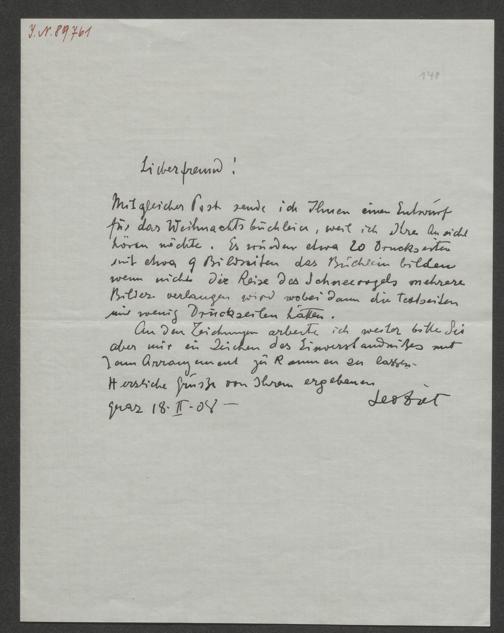 J.N. 89761
148
Lieber freund!
Mit gleicher Post sende ich Ihnen einen Entwurf
für das Weihnachtsbüchlein, weil ich Ihre Ansicht
hören möchte. Es würden etwa 20 Druckseiten
mit etwa 9 Bildseiten das Büchlein bilden
wenn nicht die Reise des Schneevogels mehrere
Bilder verlangen wird wobei dann die Textseiten
wenig Druckseiten hätten.
An den Zeichnungen arbeite ich weiter bitte Sie
aber mir ein Zeichen des Einverständnißes mit
dem Arrangement zukommen zu lassen.
Herzliche Grüsse von Ihrem ergebenen
Graz 18. II - 08 —